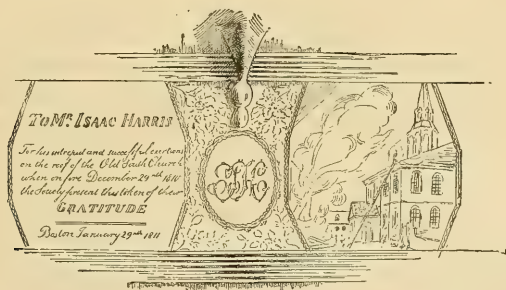 TO Mr. ISAAC HARRIS
For his intrepid and successful exertions
on the roof of the Old South Church
when on fire December 29th 1810
the Society present this token of their
GRATITUDE
Boston January 29th 1811